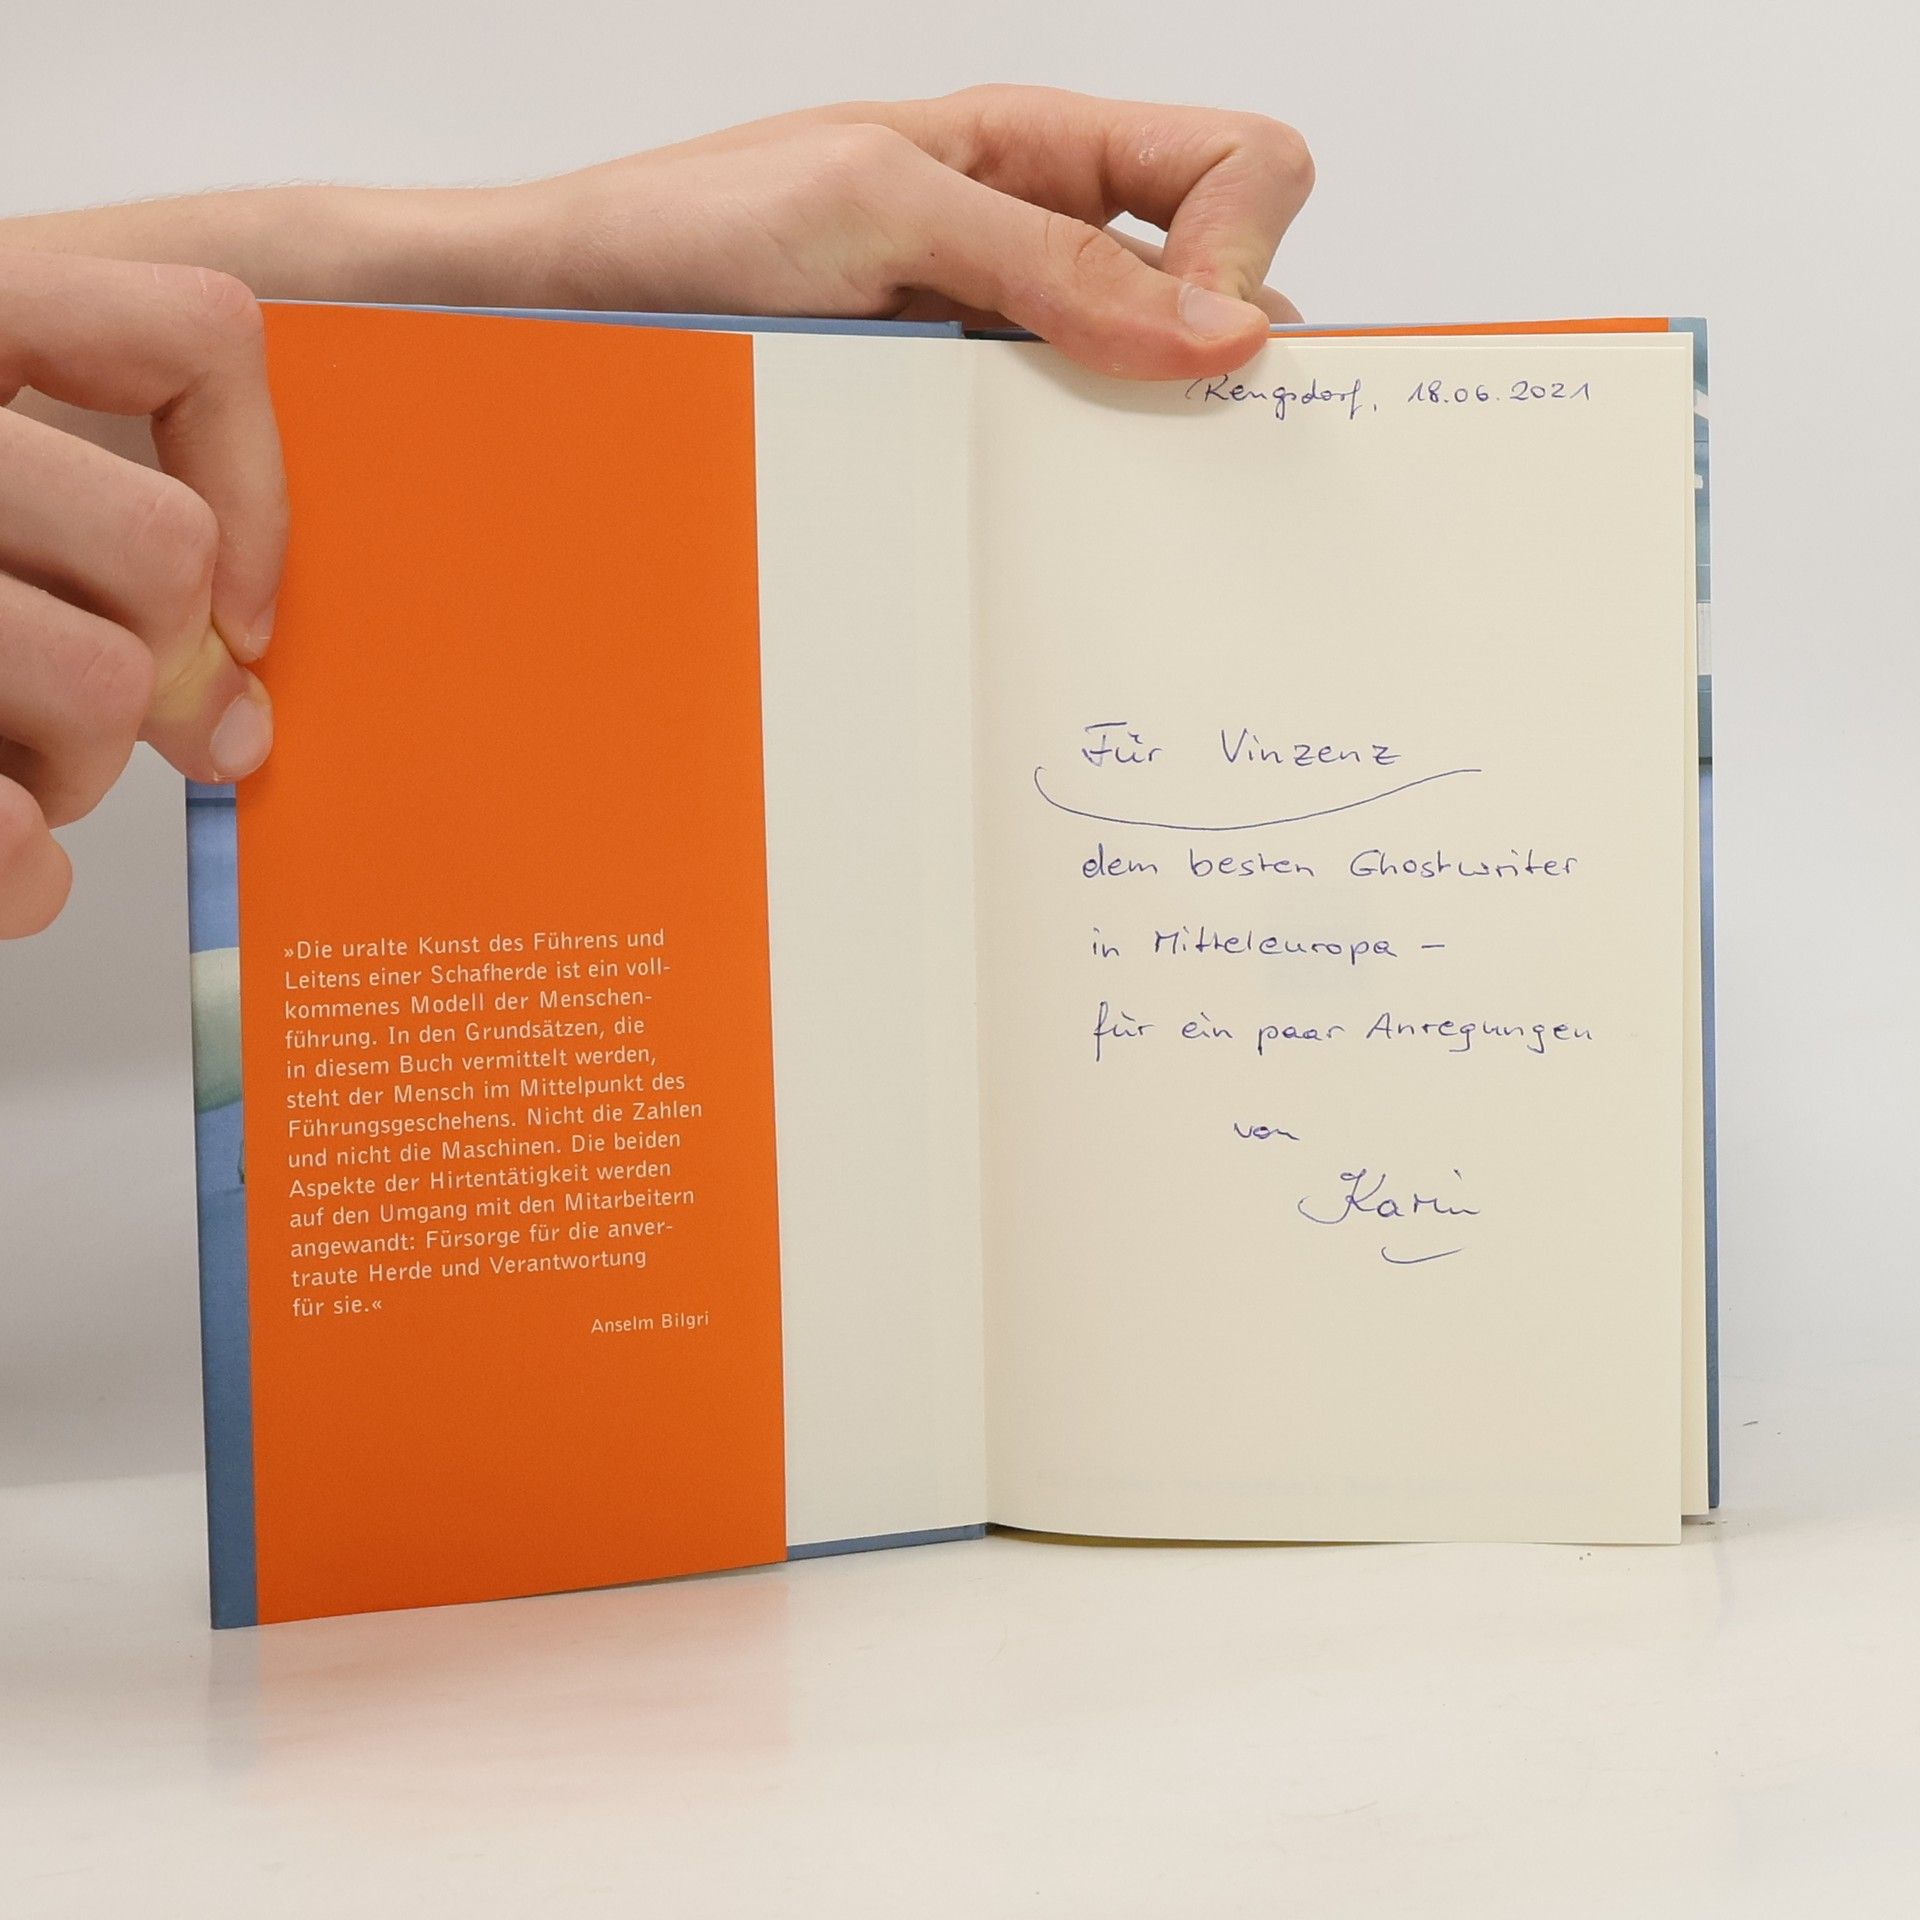 »Die uralte Kunst des Führens und
Leitens einer Schafherde ist ein voll-
kommenes Modell der Menschen-
führung. In den Grundsätzen, die
in diesem Buch vermittelt werden,
steht der Mensch im Mittelpunkt des
Führungsgeschehens. Nicht die Zahlen
und nicht die Maschinen. Die beiden
Aspekte der Hirtentätigkeit werden
auf den Umgang mit den Mitarbeitern
angewandt: Fürsorge für die anver-
traute Herde und Verantwortung
für sie.«
Anselm Bilgri
Rengsdorf, 18.06.2021
Für Vinzenz
dem besten Ghostwriter
in Mitteleuropa –
für ein paar Anregungen
von
Karin